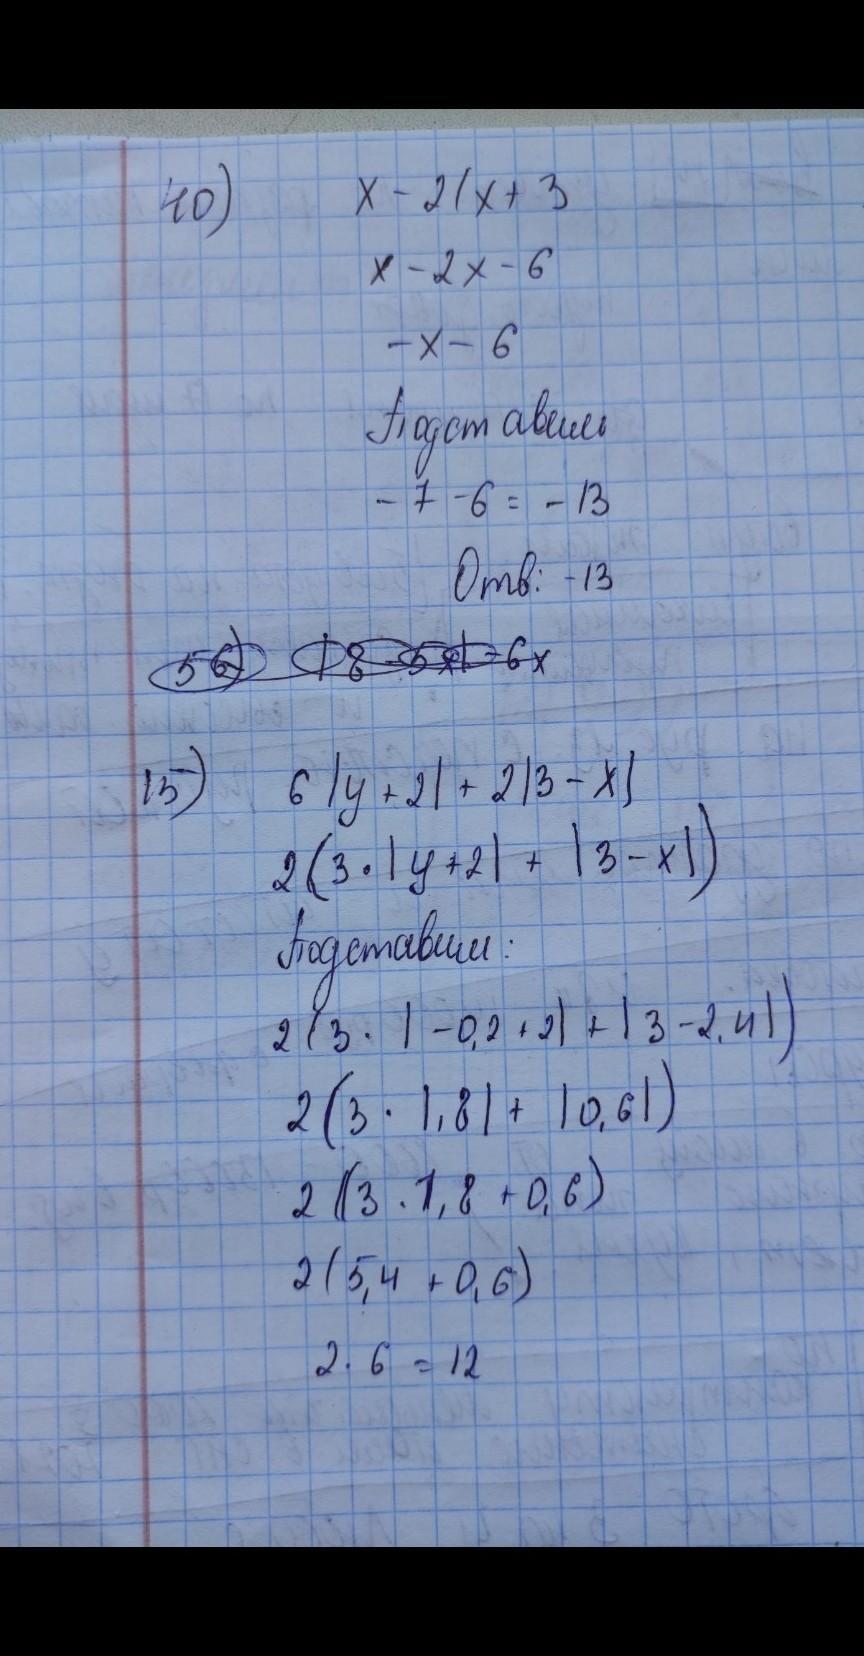 40) x - 2(x + 3
x - 2x - 6
-x - 6
Подставим
-7 - 6 = -13
Отв: -13
56) |8 - 5x| - 6x
15) 6|y + 2| + 2|3 - x|
2(3 · |y + 2| + |3 - x|)
Подставим:
2(3 · |-0,2 + 2| + |3 - 2,4|)
2(3 · |1,8| + |0,6|)
2((3 · 1,8 + 0,6)
2(5,4 + 0,6)
2 · 6 = 12